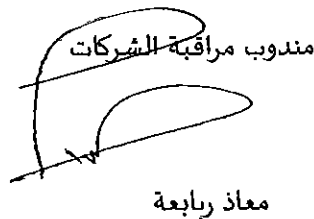 مندوب مراقبة الشركات
معاذ ربابعة